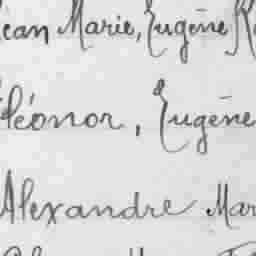 Jean Marie, Eugène
Éléonor, Eugène
Alexandre Mar